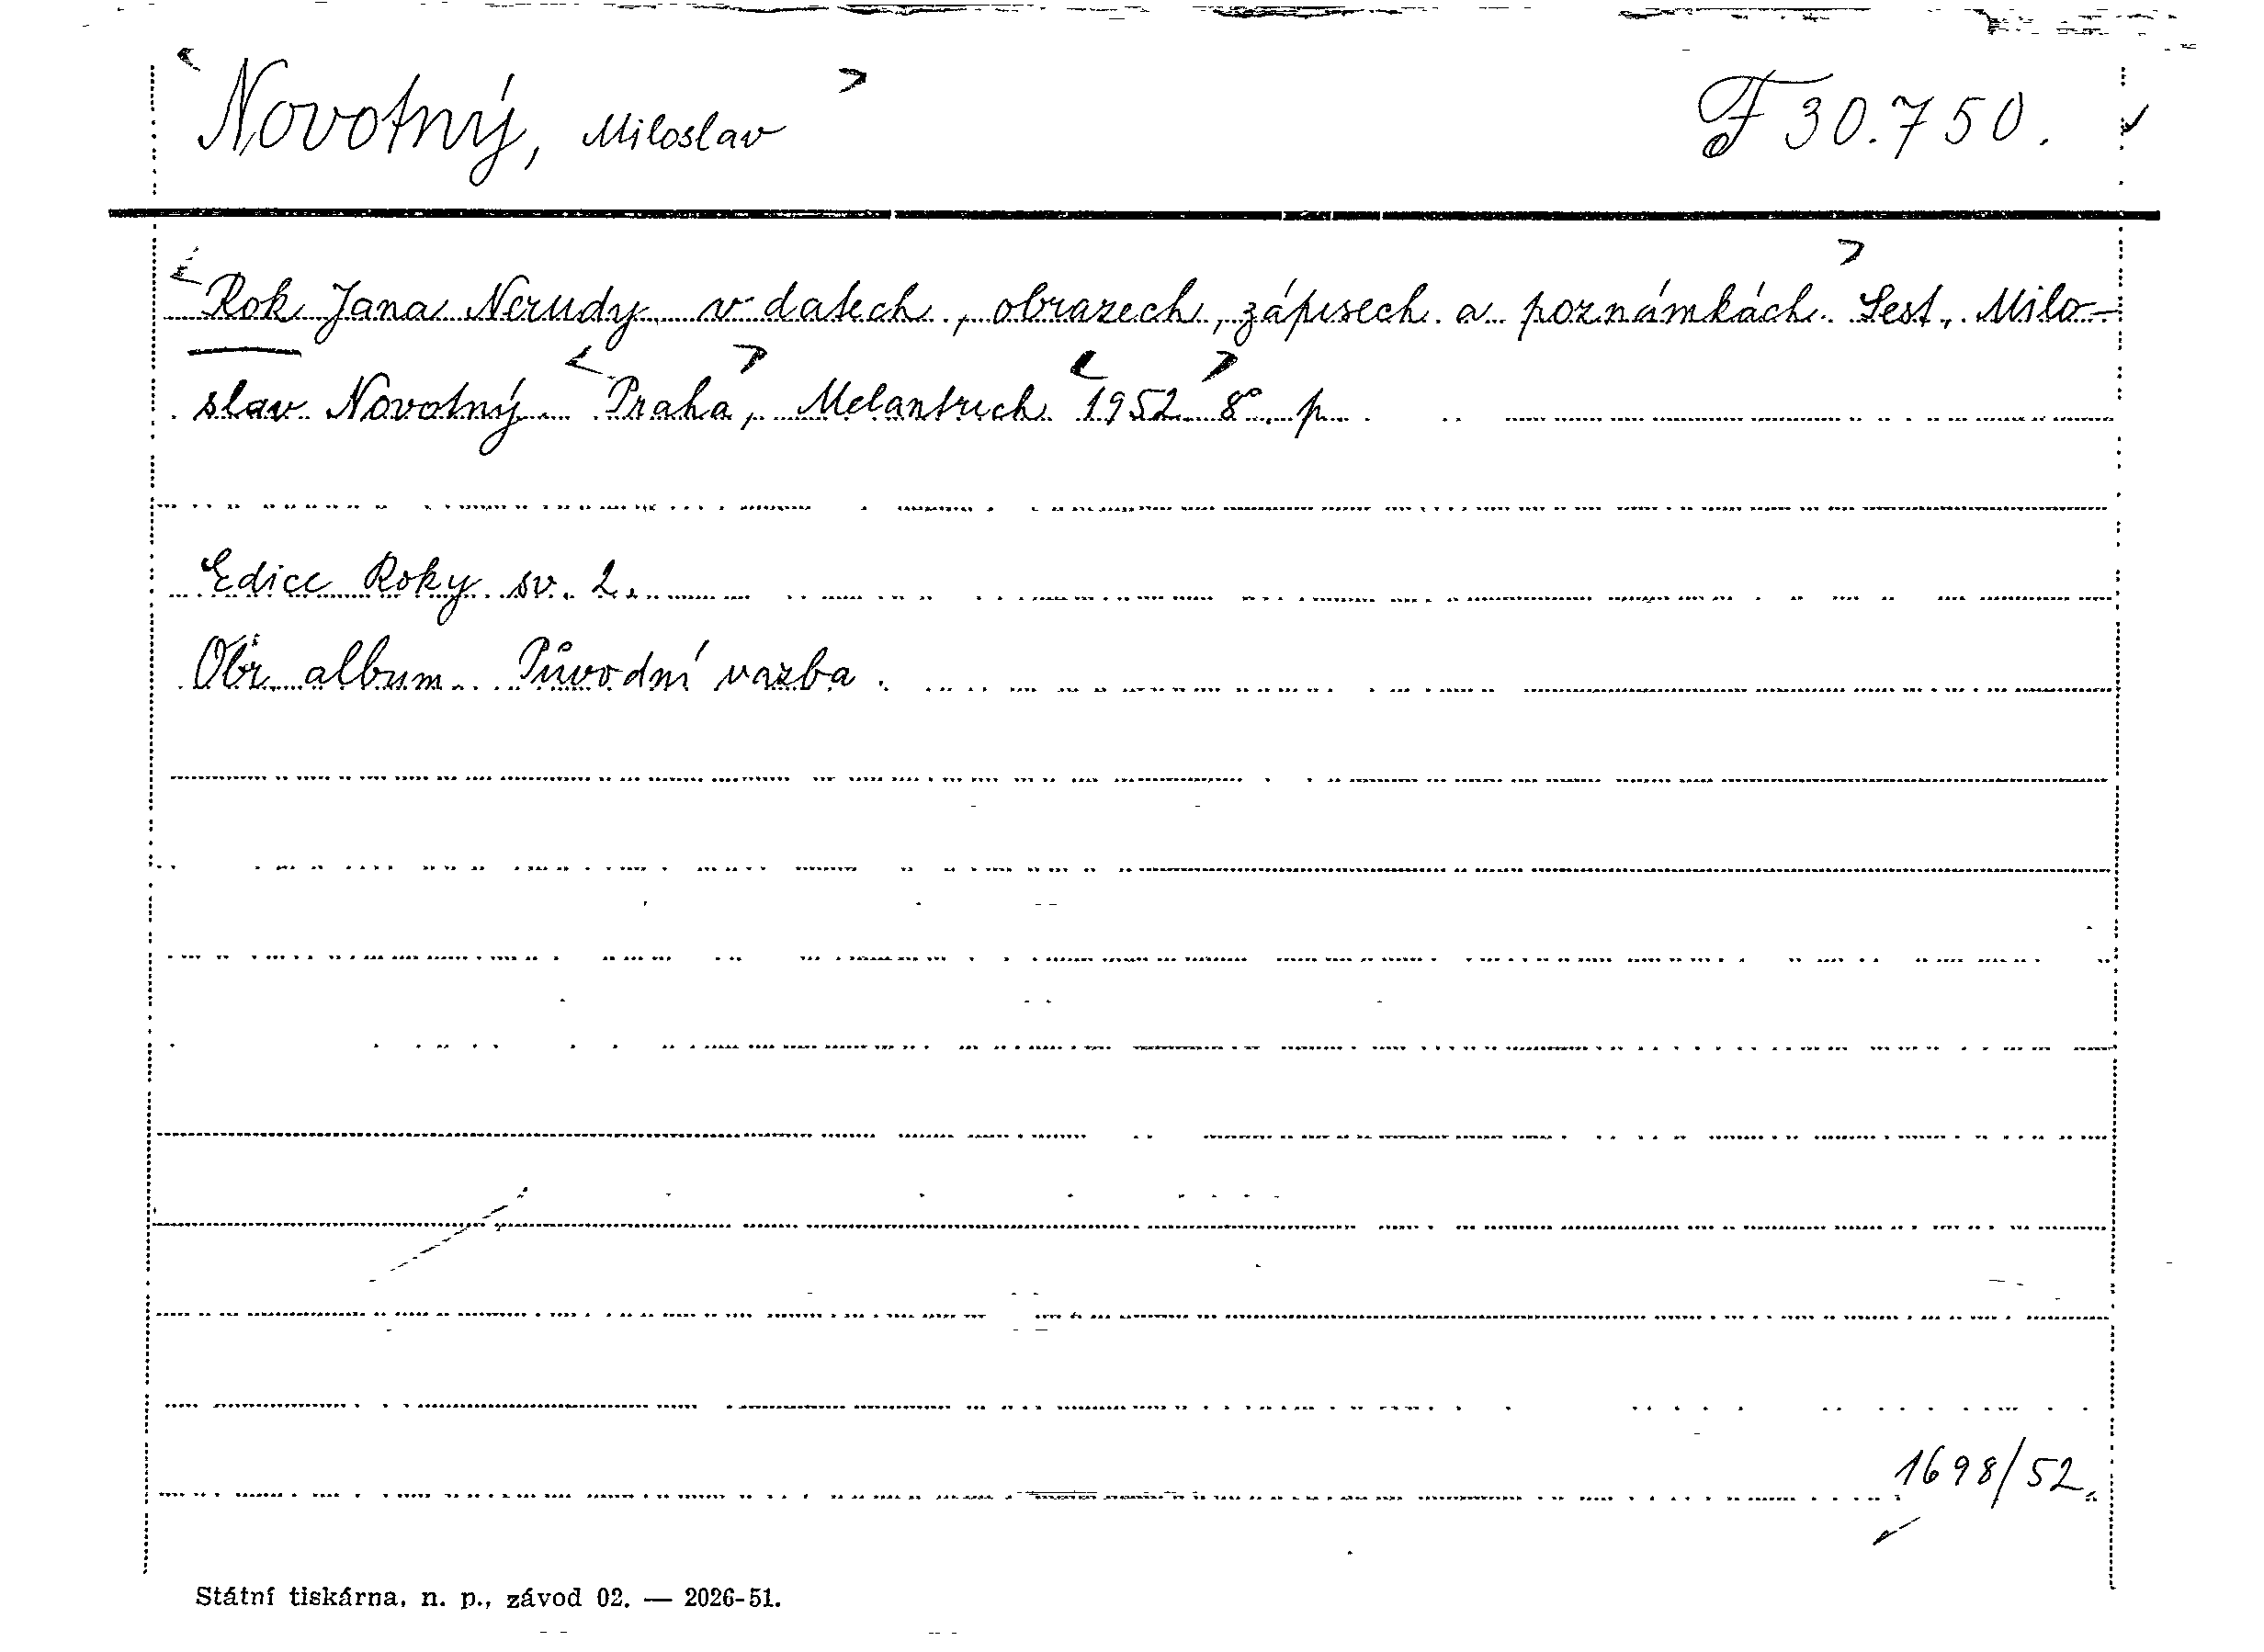 Novotný, Miloslav
F 30.750.
Rok Jana Nerudy v datech, obrazech, zápisech a poznámkách. Sest. Milo-
slav Novotný. Praha, Melantrich 1952 8°. p.
Edice Roky sv. 2.
Obr. album. Původní vazba.
1698/52.
Státní tiskárna, n. p., závod 02. — 2026-51.